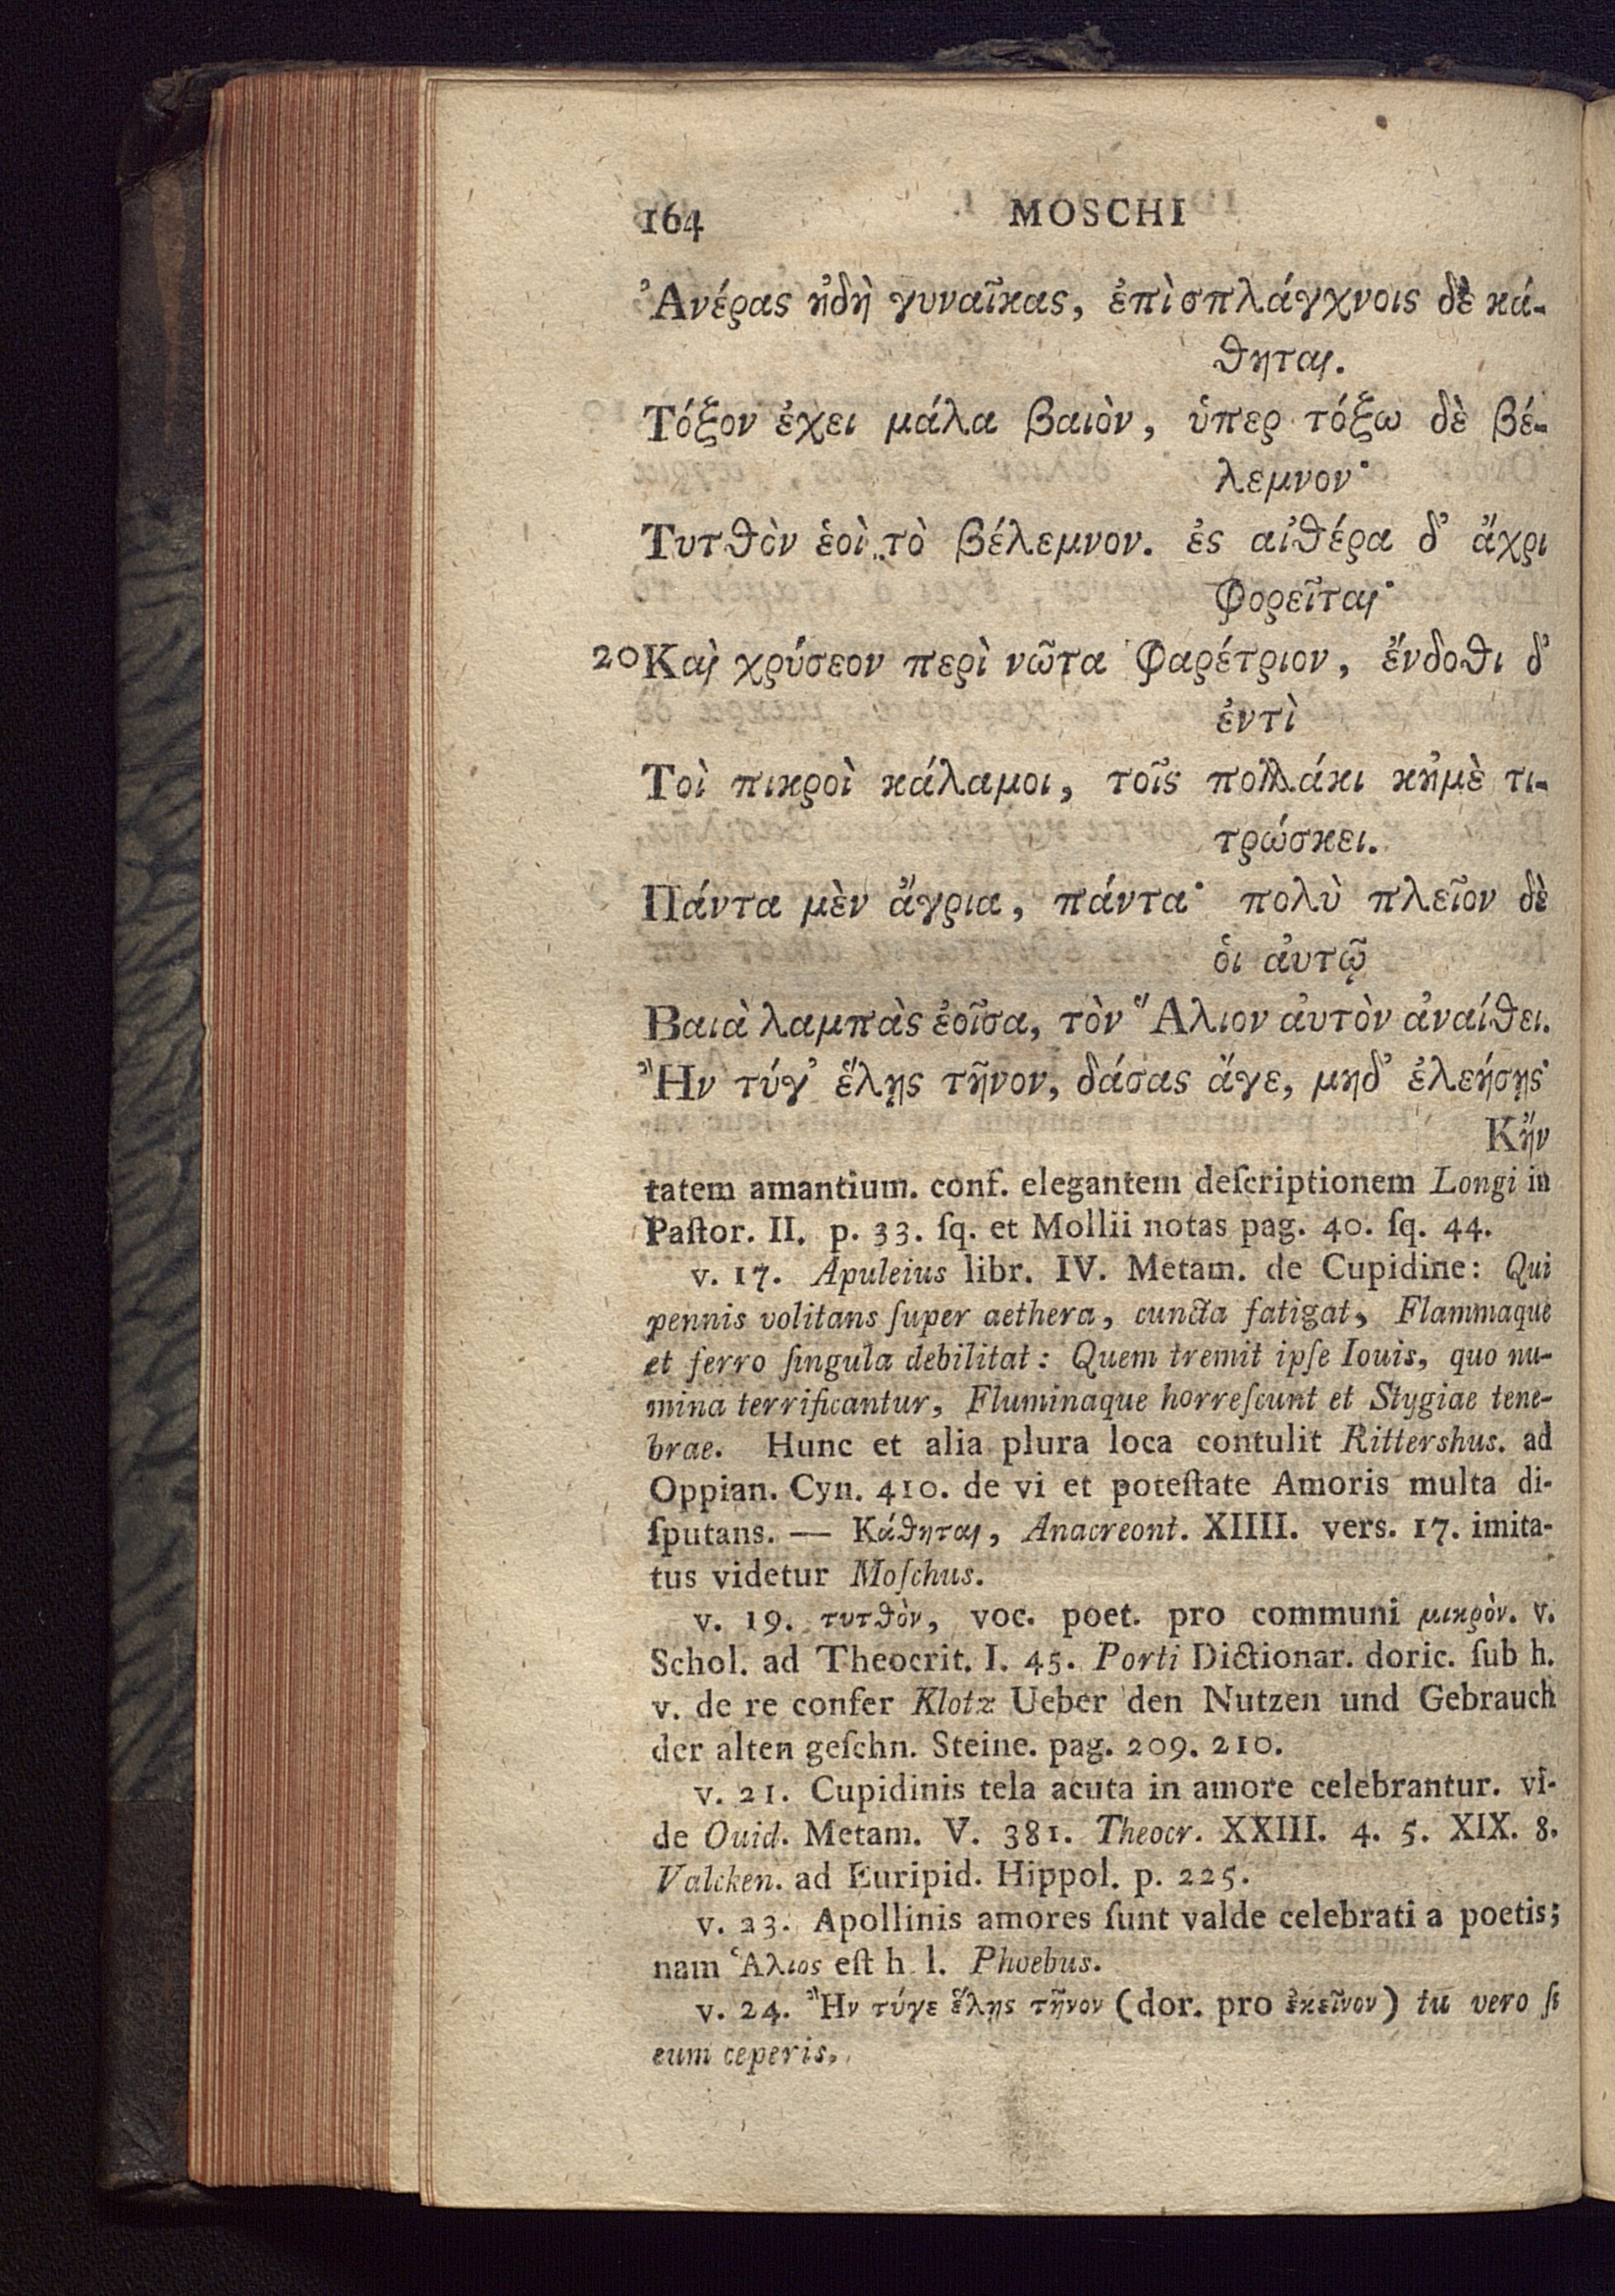 164 MOSCHI
Ἀνέρας ἠδὴ γυναῖκας, ἐπὶ σπλάγχνοις δὲ κά-
θηται.
Τόξον ἔχει μάλα βαιὸν, ὑπερ τόξω δὲ βέ-
λεμνον·
Τυτθὸν ἑοὶ τὸ βέλεμνον. ἐς αἰθέρα δ' ἄχρι
φορεῖται·
20 Καὶ χρύσεον περὶ νῶτα φαρέτριον, ἔνδοθι δ'
ἐντὶ
Τοὶ πικροὶ κάλαμοι, τοῖς πολλάκι κἠμὲ τι-
τρώσκει.
Πάντα μὲν ἄγρια, πάντα· πολὺ πλεῖον δὲ
ὁι ἀυτῷ
Βαιὰ λαμπὰς ἐοῖσα, τὸν Ἅλιον ἀυτὸν ἀναίθει.
Ἢν τύγ' ἕλῃς τῆνον, δάσας ἄγε, μηδ' ἐλεήσῃς·
Κἤν
tatem amantium. conf. elegantem deſcriptionem Longi in
Paſtor. II. p. 33. ſq. et Mollii notas pag. 40. ſq. 44.
v. 17. Apuleius libr. IV. Metam. de Cupidine: Qui
pennis volitans ſuper aethera, cuncta fatigat, Flammaque
et ferro ſingula debilitat: Quem tremit ipſe Iouis, quo nu-
mina terrificantur, Fluminaque horreſcunt et Stygiae tene-
brae. Hunc et alia plura loca contulit Rittershus. ad
Oppian. Cyn. 410. de vi et poteſtate Amoris multa di-
ſputans. — Κάθηται, Anacreont. XIIII. vers. 17. imita-
tus videtur Moſchus.
v. 19. τυτθὸν, voc. poet. pro communi μικρὸν. v.
Schol. ad Theocrit. I. 45. Porti Dictionar. doric. ſub h.
v. de re confer Klotz Ueber den Nutzen und Gebrauch
der alten geſchn. Steine. pag. 209. 210.
v. 21. Cupidinis tela acuta in amore celebrantur. vi-
de Ouid. Metam. V. 381. Theocr. XXIII. 4. 5. XIX. 8.
Valcken. ad Euripid. Hippol. p. 225.
v. 23. Apollinis amores ſunt valde celebrati a poetis;
nam Ἁλιος eſt h. l. Phoebus.
v. 24. Ἢν τύγε ἕλῃς τῆνον (dor. pro ἐκεῖνον) tu vero ſi
eum ceperis.